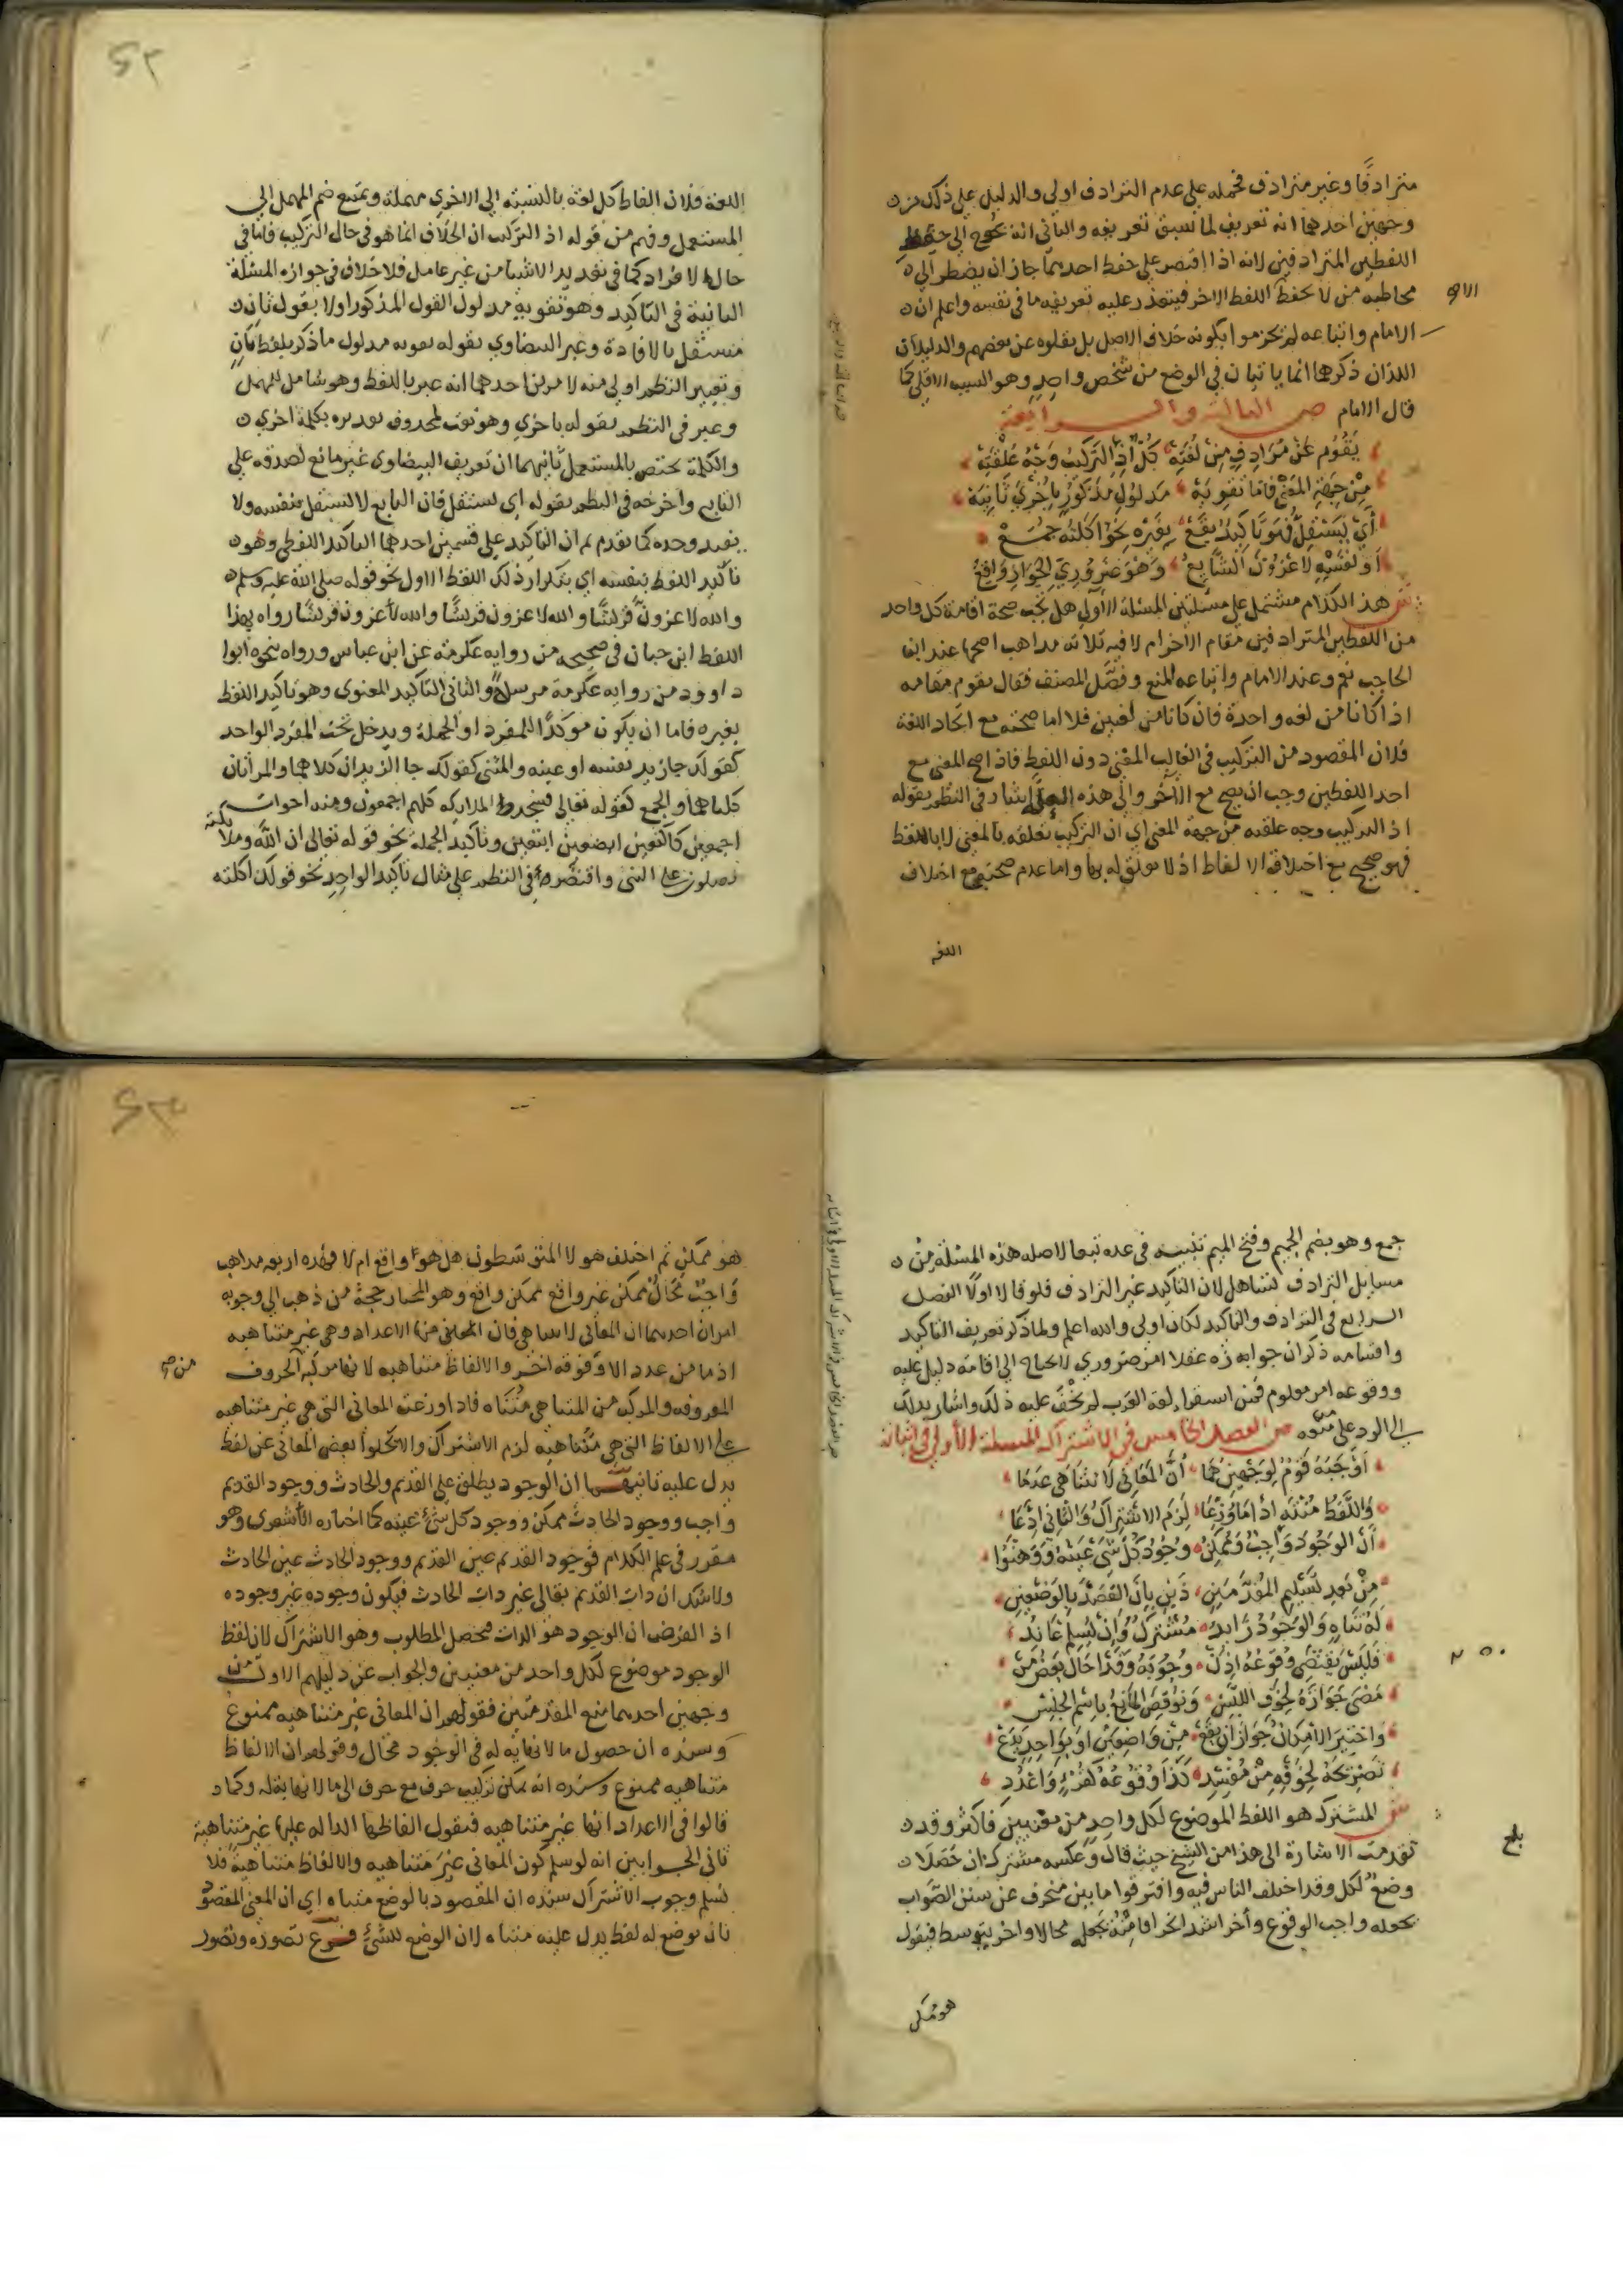 مترادفا وغير مترادف فحمله على عدم الترادف اولى والدليل على ذلك من
وجهين احدهما انه تعريف لما سبق تعريفه والثاني انه يحوج الى حفظ
اللفظين المترادفين لانه اذا اقتصر على حفظ احدهما جاز ان يضطر الى
مخاطبة من لا يحفظ اللفظ الاخر فيتعذر عليه تعريفه ما في نفسه واعلم ان
الامام واتباعه لم يجزموا بكونه خلاف الاصل بل نقلوه عن بعضهم والدليلان
اللذان ذكرهما انما ياتيان في الوضع من شخص واحد وهو السبب الاقلي كما
قال الامام ص الثالثة والرابعة
يقوم عن مرادف من لغته كل اذ التركيب وجه علقته
من جهة المعنى فاما تقوية مدلول مذكور باخرى ثانية
اي يستقل فهو تاكيد يقع بغيره نحو اكلته جمع
او لنفسه لاغزون الشايع وهو ضروري الجواز واقع
ش هذا الكلام مشتمل على مسئلتين المسئلة الاولى هل يجب صحة اقامة كل واحد
من اللفظين المترادفين مقام الاخر ام لا فيه ثلاثة مذاهب اصحها عند ابن
الحاجب نعم وعند الامام واتباعه المنع وفصل المصنف فقال يقوم مقامه
اذا كانا من لغة واحدة فان كانا من لغتين فلا اما صحته مع اتحاد اللغة
فلان المقصود من التركيب في الغالب المعنى دون اللفظ فاذا صح المعنى مع
احد اللفظين وجب ان يصح مع الاخر والى هذه العلة اشار في النظم بقوله
اذ التركيب وجه علقته من جهة المعنى اي ان التركيب تعلقه بالمعنى لا باللفظ
فهو صحيح مع اختلاف الالفاظ اذ لا تعلق له بها واما عدم صحته مع اختلاف
اللغة
اللغة فلان الفاظ كل لغة بالنسبة الى الاخرى مهملة ويمتنع ضم المهمل الى
المستعمل وفهم من قوله اذ التركيب ان الخلاف انما هو في حال التركيب فاما في
حالة الافراد كما في تعديد الاشيا من غير عامل فلا خلاف في جوازه المسئلة
الثانية في التاكيد وهو تقوية مدلول القول المذكور اولا بقول ثان
مستقل بالافادة وعبر البيضاوي بقوله تقوية مدلول ما ذكر بلفظ ثان
وتعبير النظم اولى منه لامرين احدهما انه عبر باللفظ وهو شامل للمهمل
وعبر في النظم بقوله باخرى وهو نعت لمحذوف تقديره بكلمة اخرى
والكلمة تختص بالمستعمل ثانيهما ان تعريف البيضاوي غير مانع لصدقه على
التابع واخرجه في النظم بقوله اي يستقل فان التابع لا يستقل بنفسه ولا
يفيد وحده كما تقدم ثم ان التاكيد على قسمين احدهما التاكيد اللفظي وهو
تاكيد اللفظ بنفسه اي بتكرار ذلك اللفظ الاول نحو قوله صلى الله عليه وسلم
والله لاغزون قريشا والله لاغزون قريشا والله لاغزون قريشا رواه بهذا
اللفظ ابن حبان في صحيحه من رواية عكرمة عن ابن عباس ورواه بنحوه ابوا
داوود من رواية عكرمة مرسلا والثاني التاكيد المعنوي وهو تاكيد اللفظ
بغيره فاما ان يكون موكدا للمفرد او الجملة ويدخل تحت المفرد الواحد
كقولك جا زيد نفسه او عينه والمثنى كقولك جا الزيدان كلاهما والمراتان
كلتاهما والجمع كقوله تعالى فسجد الملايكة كلهم اجمعون ومنه اخوات
اجمعين كاكتعين ابصعين ابتعين وتاكيد الجملة نحو قوله تعالى ان الله وملائكته
يصلون على النبي واقتصر في النظم على مثال تاكيد الواحد نحو قولك اكلته
جمع وهو بضم الجيم وفتح الميم تنبيه في عده تبعا لاصله هذه المسئلة من
مسايل الترادف تساهل لان التاكيد غير الترادف فلو قالا اولا الفصل
الرابع في الترادف والتاكيد لكان اولى والله اعلم ولما ذكر تعريف التاكيد
واقسامه ذكر ان جوازه عقلا امر ضروري لا يحتاج الى اقامة دليل عليه
ووقوعه امر معلوم فمن استقرا لغة العرب لم يخف عليه ذلك واشار بذلك
الى الرد على منكره ص الفصل الخامس في الاشتراك المسئلة الاولى في اثباته
اوجبه قوم لوجهين هما ان المعاني لا تتناهى عدما
واللفظ منته اذا ما وزعا لزم الاشتراك والثاني ادعا
ان الوجود واجب وممكن وجود كل شي عينه ووهنوا
من بعد تسليم المقدمتين ذين بان القصد بالوضعين
له تناه والوجود زايد مشترك وان يسلم عاند
فليس يقتضي وقوعه اذن وجوبه وقد احال بعض من
مضى جوازه لخوف اللبس ونوقض المانع باسم الجنس
واختير الامكان جواز ان يقع من واضعين او بواحد يدع
تصريحه لخوفه من مفسد كذا وقوعه كقرء واعدد
ش المشترك هو اللفظ الموضوع لكل واحد من معنيين فاكثر وقد
تقدمت الاشارة الى هذا من الشيخ حيث قال وعكسه مشترك ان حصلا
وضع لكل وقد اختلف الناس فيه وافترقوا ما بين منحرف عن سنن الصواب
يجعله واجب الوقوع واخر اشد انحرافا منه يجعله محالا واخر يتوسط فيقول
هو ممكن
هو ممكن ثم اختلف هولا المتوسطون هل هو واقع ام لا فهذه اربعة مذاهب
واجب محال ممكن غير واقع ممكن واقع وهو المختار حجة من ذهب الى وجوبه
امران احدهما ان المعاني لا تتناهى فان المعاني من الاعداد وهي غير متناهية
اذ ما من عدد الا وفوقه اخر والالفاظ متناهية لانها مركبة من الحروف
المعروفة والمركب من المتناهي متناه فاذا وزعت المعاني التي هي غير متناهية
على الالفاظ التي هي متناهية لزم الاشتراك والا لخلا بعض المعاني عن لفظ
يدل عليه ثانيهما ان الوجود يطلق على القديم والحادث ووجود القديم
واجب ووجود الحادث ممكن ووجود كل شي عينه كما اختاره الاشعري وهو
مقرر في علم الكلام فوجود القديم عين القديم ووجود الحادث عين الحادث
ولا شك ان ذات القديم تعالى غير ذات الحادث فيكون وجوده غير وجوده
اذ الفرض ان الوجود هو الذات فحصل المطلوب وهو الاشتراك لان لفظ
الوجود موضوع لكل واحد من معنيين والجواب عن دليلهم الاول من
وجهين احدهما منع المقدمتين فقولهم ان المعاني غير متناهية ممنوع
وسنده ان حصول ما لا نهاية له في الوجود محال وقولهم ان الالفاظ
متناهية ممنوع وسنده انه يمكن تركيب حرف مع حرف الى ما لا نهاية له وكما
قالوا في الاعداد انها غير متناهية فنقول الفاظها الدالة عليها غير متناهية
ثاني الجوابين انه لو سلم كون المعاني غير متناهية والالفاظ متناهية فلا
نسلم وجوب الاشتراك سنده ان المقصود بالوضع متناه اي ان المعنى المقصود
بان يوضع له لفظ يدل عليه متناه لان الوضع للشي فرع تصوره وتصور